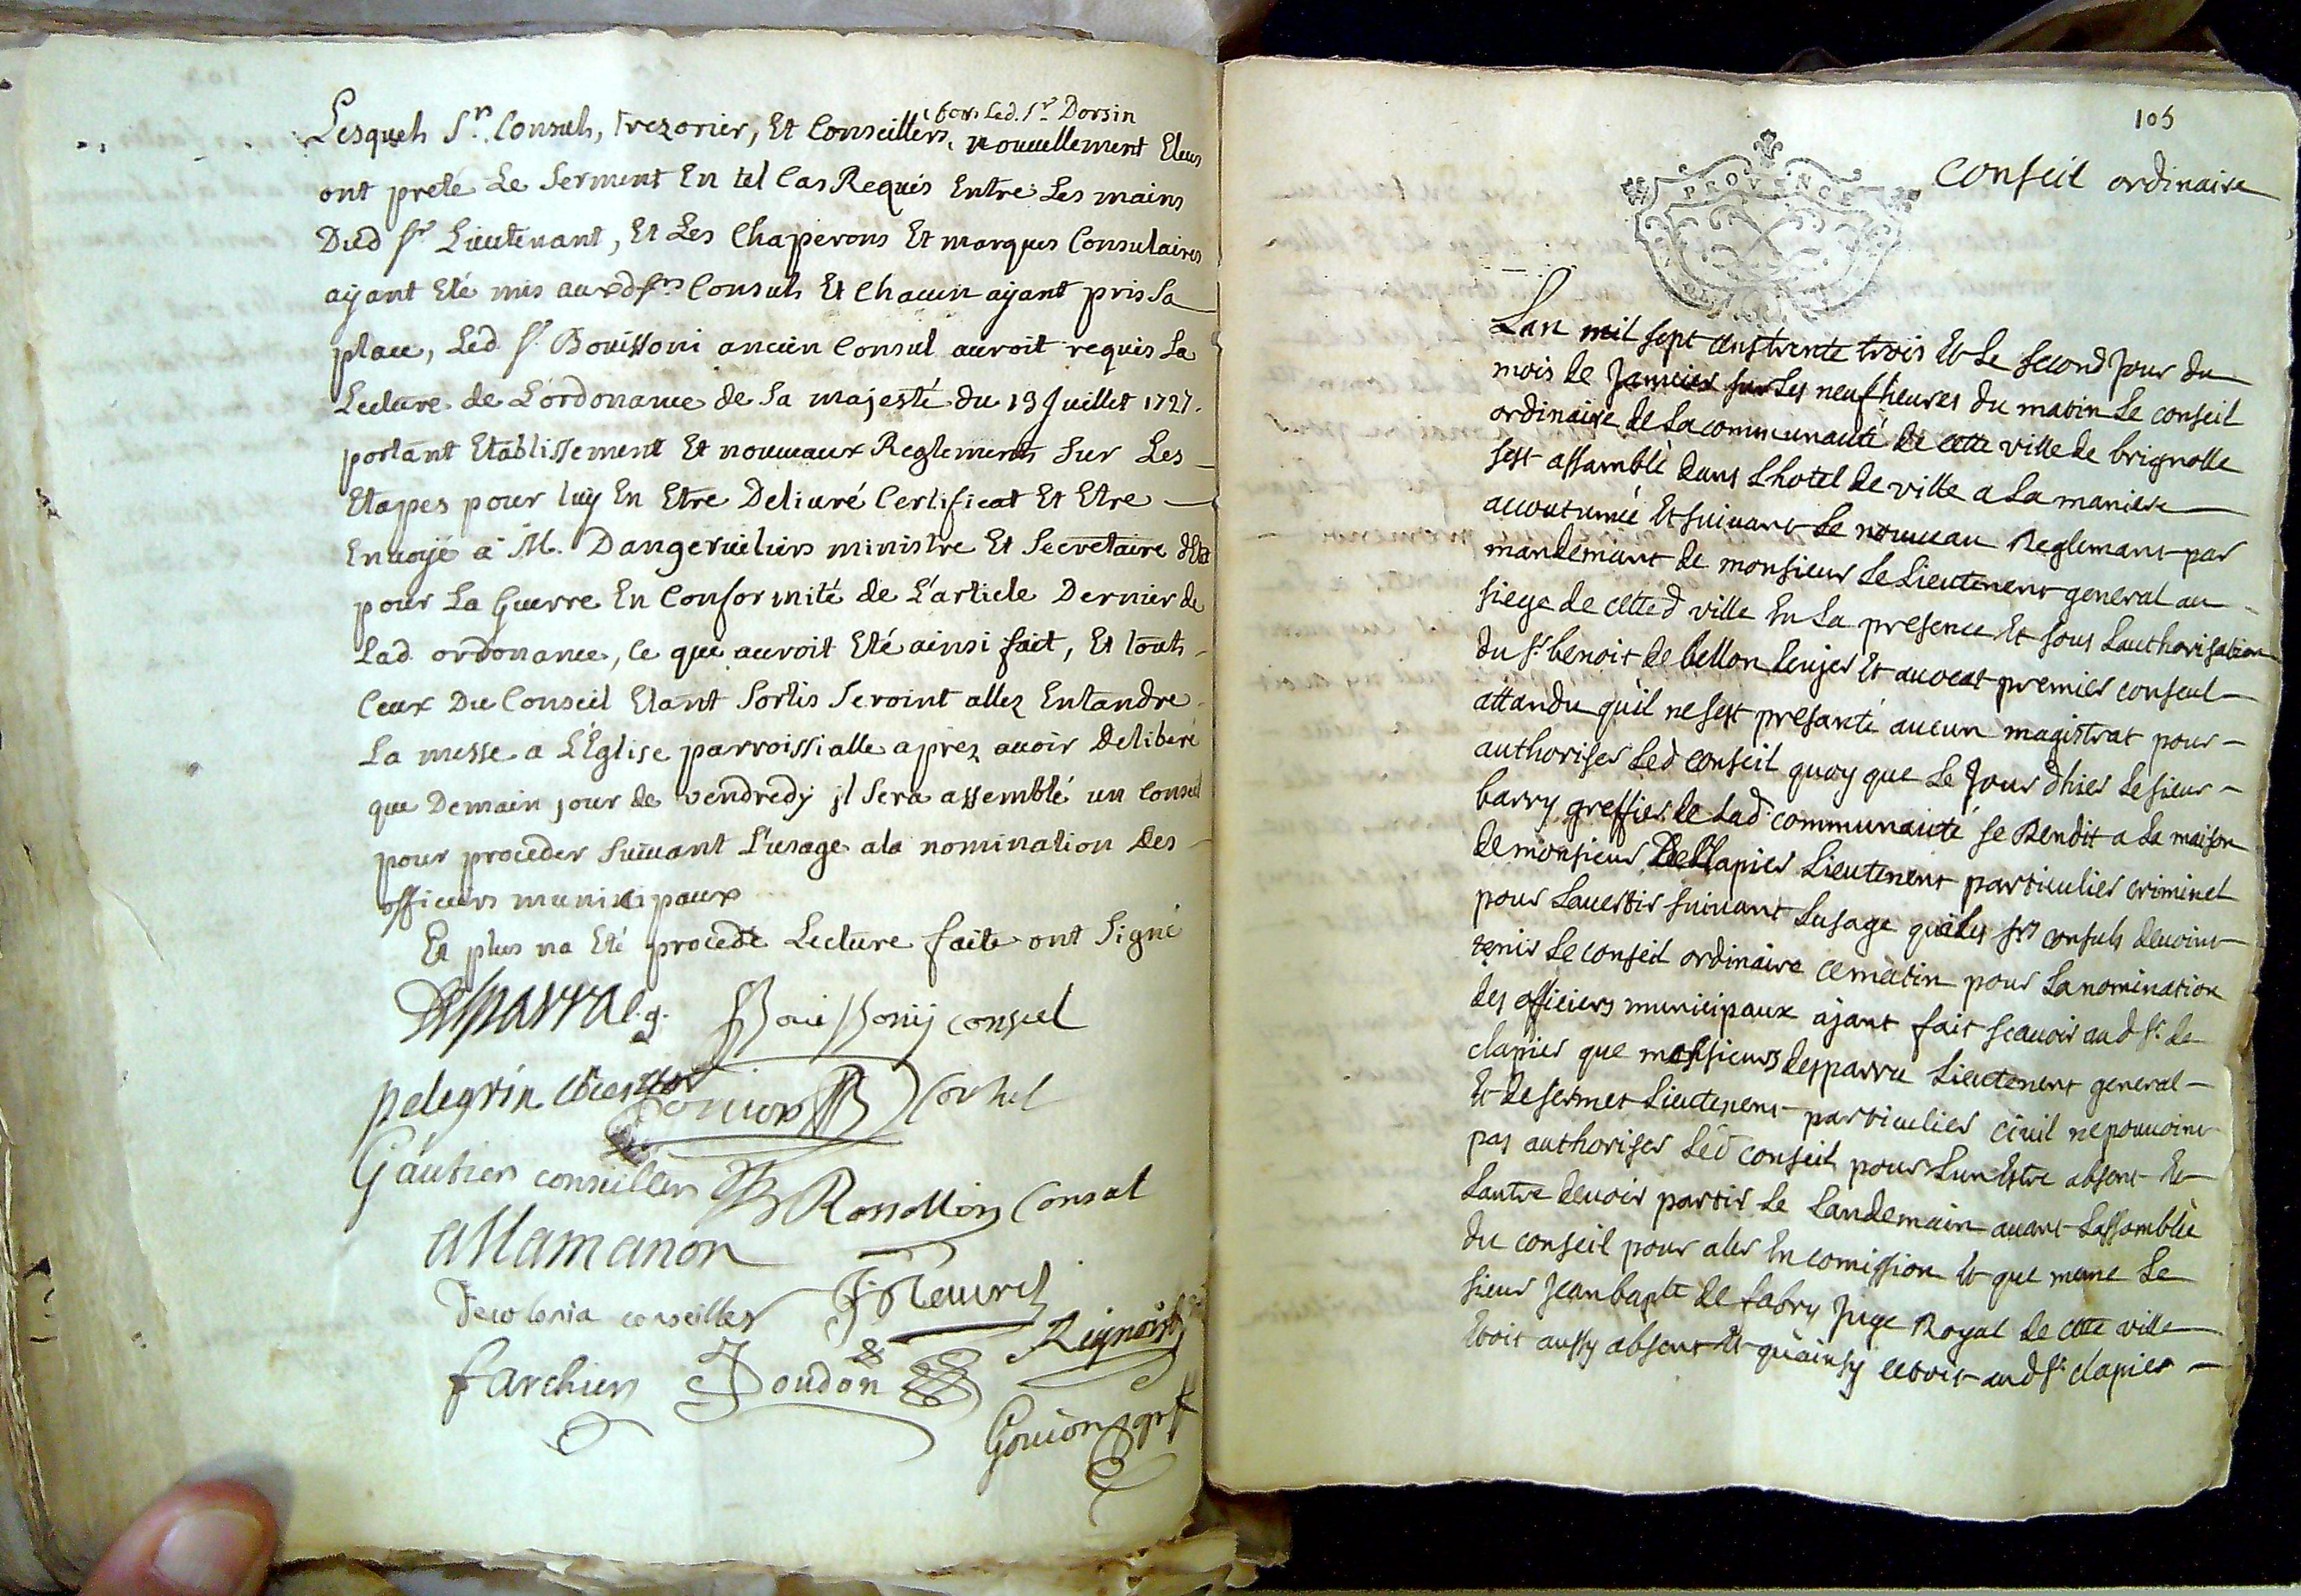 hors Led. Sr. Dorsin
Lesquels Srs. Consuls, Trezorier, Et Conseillers, nouuellement Eleus
ont preté Le Serment En tel Cas Requis Entre Les mains
Dud Sr Lieutenant, Et Les Chaperons Et marques Consulaires
ayant Eté mis auxd Srs Consuls Et Chacun ayant pris Sa
place, Led Sr. Bouissoni ancien Consul auroit requis La
Lecture de L'ordonance de Sa majesté du 13 Juillet 1727.
portant Etablissement Et nouueaux Reglements Sur Les
Etapes pour luy En Etre Deliuré Certificat Et Etre
Enuoyé a M. Dangeruiliers ministre Et Secretaire dEtat
pour La Guerre En Conformité de L'article Dernier de
Lad ordonance, Ce que auroit Eté ainsi fait, Et touts
Ceux Du Conseil Etant Sortis Seroint allez Entandre
La messe a L'Eglise parroissialle aprez auoir Deliberé
que Demain jour de vendredy jl Sera assemblé un Conseil
pour proceder Suiuant L'usage ala nomination Des
officiers municipaux
Et plus na Eté procedé Lecture faite ont Signé
Desparra l.g. Bouissony consul
pelegrin Consul
Gautier conseiller Rossollin Consal
allamanon
Decoloria conseiller F Fleuret
Reignoist
farchier Joudon
Gouion grf
105
PROVENCE
Conseil ordinaire
Lan mil sept cens trente trois Et Le second Jour du
mois de Januier sur Les neuf heures du matin Le conseil
ordinaire de La communauté de cette ville de brignolle
sest assamblé dans Lhotel de ville a La maniere
accoutumée Et suiuant Le nouueau Reglemant par
mandemant de monsieur Le Lieutenent general au
siege de cetted ville En La presence Et sous Lauthorisation
du Sr benoit de bellon Ecuyer Et auocat premier consul
attandu qu'il ne sest presanté aucun magistrat pour
authoriser Led conseil quoy que Le Jour dhier Le sieur
barry greffier de Lad communauté se Rendit a La maison
de monsieur De Clapier Lieutenent particulier criminel
pour Lauertir suiuant Lusage que Les Srs consuls deuoint
tenir Le conseil ordinaire ce matin pour La nomination
des officiers municipaux ajant fait scauoir aud Sr. de
clapier que messieurs desparra Lieutenent general
Et de sermet Lieutenent particulier ciuil ne pouuoint
pas authoriser Led conseil pour Lun Estre absent Et
Lautre deuoir partir Le Landemain auant Lassamblée
du conseil pour aler En comission Et que meme Le
sieur Jean bapte de fabry Juge Royal de cette ville
Etoit aussy absent Et qu'ainsy cetoit aud Sr. clapier